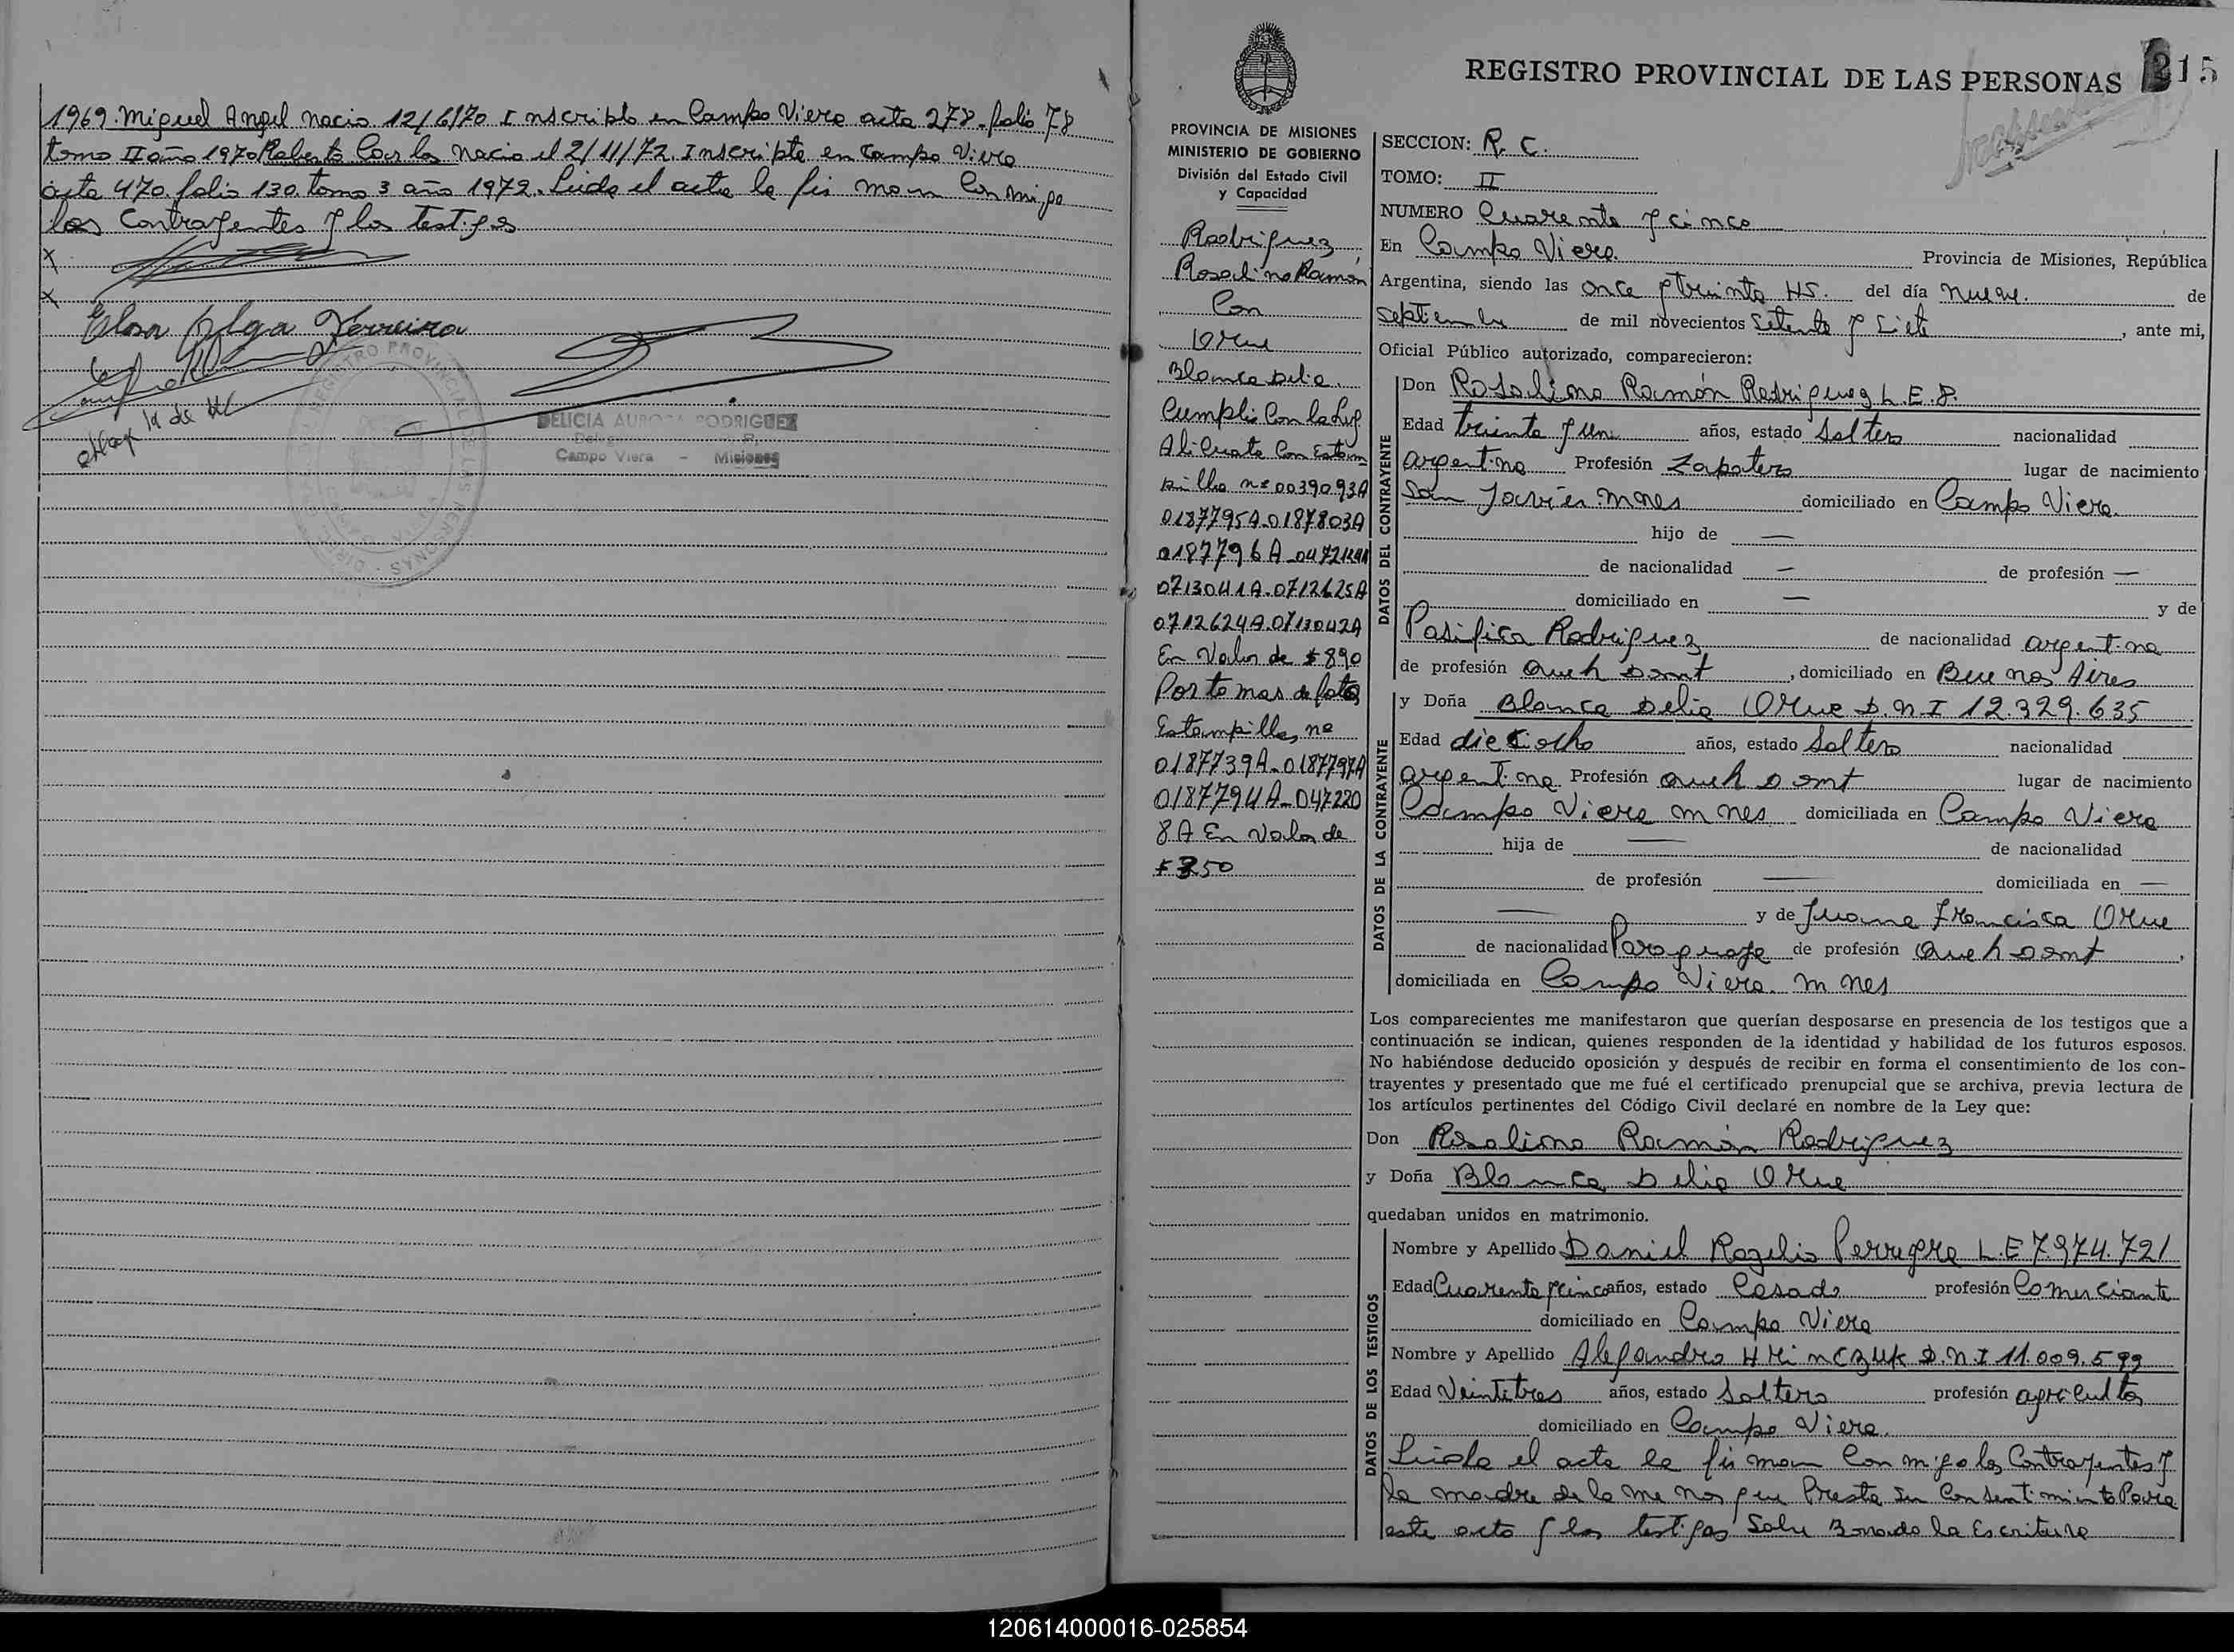 1969. Miguel Angel nacio 12/6/70 Inscripto en Campo Viera acta 278. folio 78
tomo II año 1970 Roberto Carlos Nacio el 2/11/72. Inscripto en Campo Viera
acta 470. folio 130. tomo 3 año 1972. Leida el acta la firman Conmigo
los Contrayentes y los testigos
x
x
Elsa Olga Ferreira
DELICIA AURORA RODRIGUEZ
Campo Viera - Misiones
REGISTRO PROVINCIAL DE LAS PERSONAS
215
PROVINCIA DE MISIONES
MINISTERIO DE GOBIERNO
División del Estado Civil
y Capacidad
Rodriguez
Rosalino Ramón
Con
Orue
Blanca Delia.
Cumpli Con la Ley
Alicuota Con Estam
pilla nº 0039093A
0187795A-0187803A
0187796A-
0713041A-0712625A
0712624A-0713042A
En Valor de $890
Por tomas de fotos
Estampillas nº
0187739A-0187797A
0187794A-047220
8A En Valor de
$350
SECCION: R. C.
TOMO: II
NUMERO Cuarenta y cinco
En Campo Viera. Provincia de Misiones, República
Argentina, siendo las once y treinta HS. del día nueve. de
septiembre de mil novecientos Setenta y Siete, ante mi,
Oficial Público autorizado, comparecieron:
DATOS DEL CONTRAYENTE
Don Rosalino Ramón Rodriguez L.E. 8.
Edad treinta y un años, estado Soltero nacionalidad
argentina Profesión Zapatero lugar de nacimiento
San Javier. Mnes domiciliado en Campo Viera.
hijo de —
de nacionalidad — de profesión —
domiciliado en — y de
Pasifica Rodriguez de nacionalidad argentina
de profesión queh domt, domiciliado en Buenos Aires
DATOS DE LA CONTRAYENTE
y Doña Blanca Delia Orue D.N.I 12.329.635
Edad dieciocho años, estado Soltera nacionalidad
argentina Profesión queh domt lugar de nacimiento
Campo Viera Mnes domiciliada en Campo Viera
hija de — de nacionalidad
de profesión — domiciliada en —
— y de Juana Francisca Orue
de nacionalidad Paraguaya de profesión Queh domt,
domiciliada en Campo Viera. Mnes
Los comparecientes me manifestaron que querían desposarse en presencia de los testigos que a
continuación se indican, quienes responden de la identidad y habilidad de los futuros esposos.
No habiéndose deducido oposición y después de recibir en forma el consentimiento de los con-
trayentes y presentado que me fué el certificado prenupcial que se archiva, previa lectura de
los artículos pertinentes del Código Civil declaré en nombre de la Ley que:
Don Rosalino Ramón Rodriguez
y Doña Blanca Delia Orue
quedaban unidos en matrimonio.
DATOS DE LOS TESTIGOS
Nombre y Apellido Daniel Rogelio Perreyra L.E 7.974.721
Edad Cuarenta y cinco años, estado Casado profesión Comerciante
domiciliado en Campo Viera
Nombre y Apellido Alejandro Hrinczuk D.N.I 11.009.599
Edad Veintitres años, estado Soltero profesión agricultor
domiciliado en Campo Viera.
Leida el acta la firman Conmigo los Contrayentes y
la madre de la menor que Presta su Consentimiento Para
este acto y los testigos Sobre Borrado la Escritura
120614000016-025854